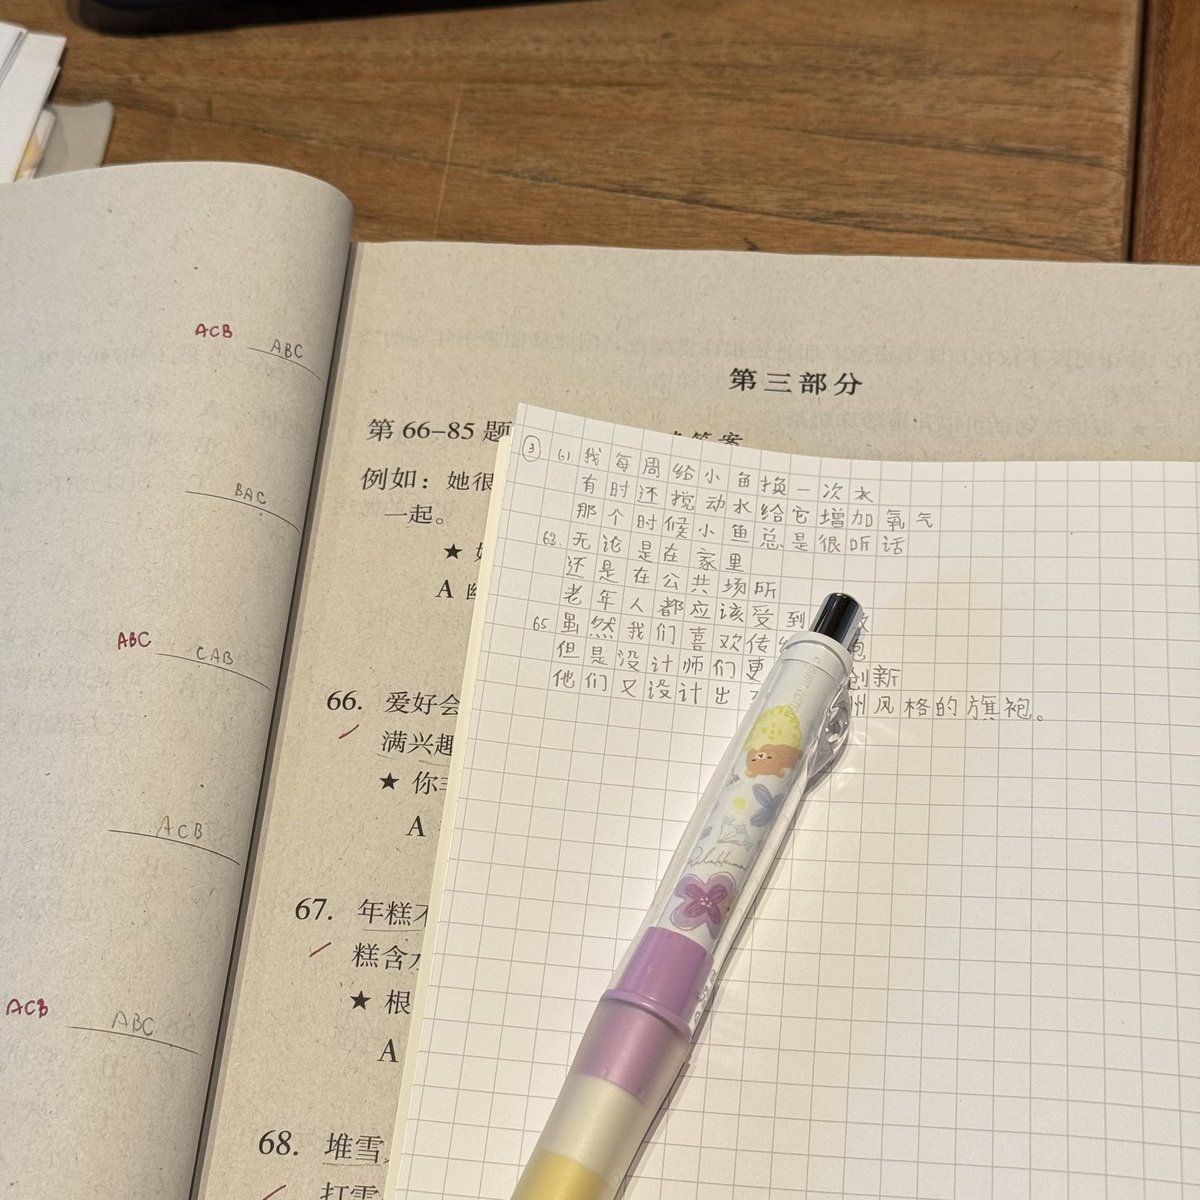 ACB ABC
BAC
ABC CAB
ACB
ACB ABC
第三部分
第 66-85 题
例如：她很
一起。
★
A
66. 爱好会
满兴趣
★ 你
A
67. 年糕不
糕含水
★ 根
A
68. 堆雪
打雪
③ 61. 我每周给小鱼换一次水
有时还搅动水给它增加氧气
那个时候小鱼总是很听话
63. 无论是在家里
还是在公共场所
老年人都应该受到
65. 虽然我们喜欢传
但是设计师们更 创新
他们又设计出 州风格的旗袍。